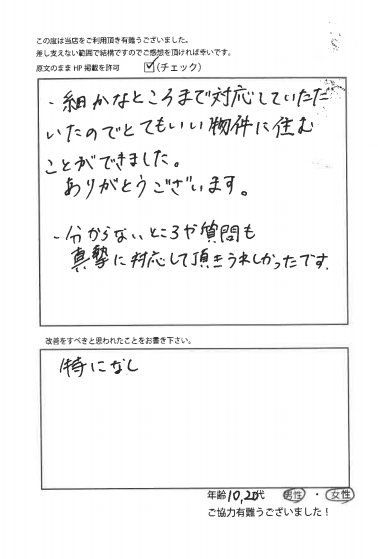 この度は当店をご利用頂き有難うございました。
差し支えない範囲で結構ですのでご感想を頂ければ幸いです。
原文のまま HP 掲載を許可 ☑(チェック)
・細かなところまで対応していただ
いたのでとてもいい物件に住む
ことができました。
ありがとうございます。
・分からないところや質問も
真摯に対応して頂きうれしかったです。
改善をすべきと思われたことをお書き下さい。
特になし
年齢10,20代 男性 ・ 女性
ご協力有難うございました！